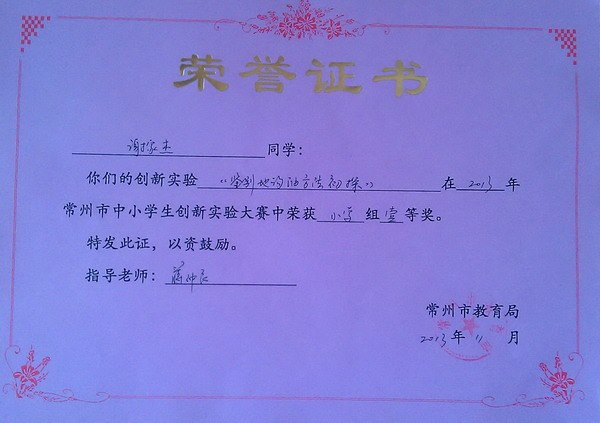 荣誉证书
谢家杰 同学：
你们的创新实验 “鉴别地沟油方法初探” 在 2013 年
常州市中小学生创新实验大赛中荣获 小学 组 壹 等奖。
特发此证，以资鼓励。
指导老师： 蒋仲良
常州市教育局
2013 年 11 月